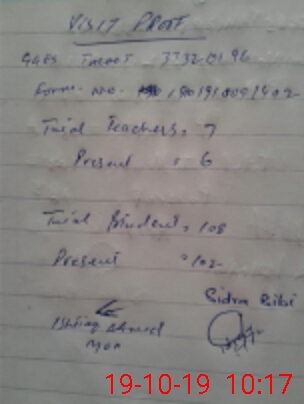 VISIT PROOF
GGES 37320196
Form. no.
Total Teachers. 7
Present : 6
Total Student. 108
Present : 102
Sidra Bibi
Ishtiaq Ahmed
MEA
19-10-19 10:17